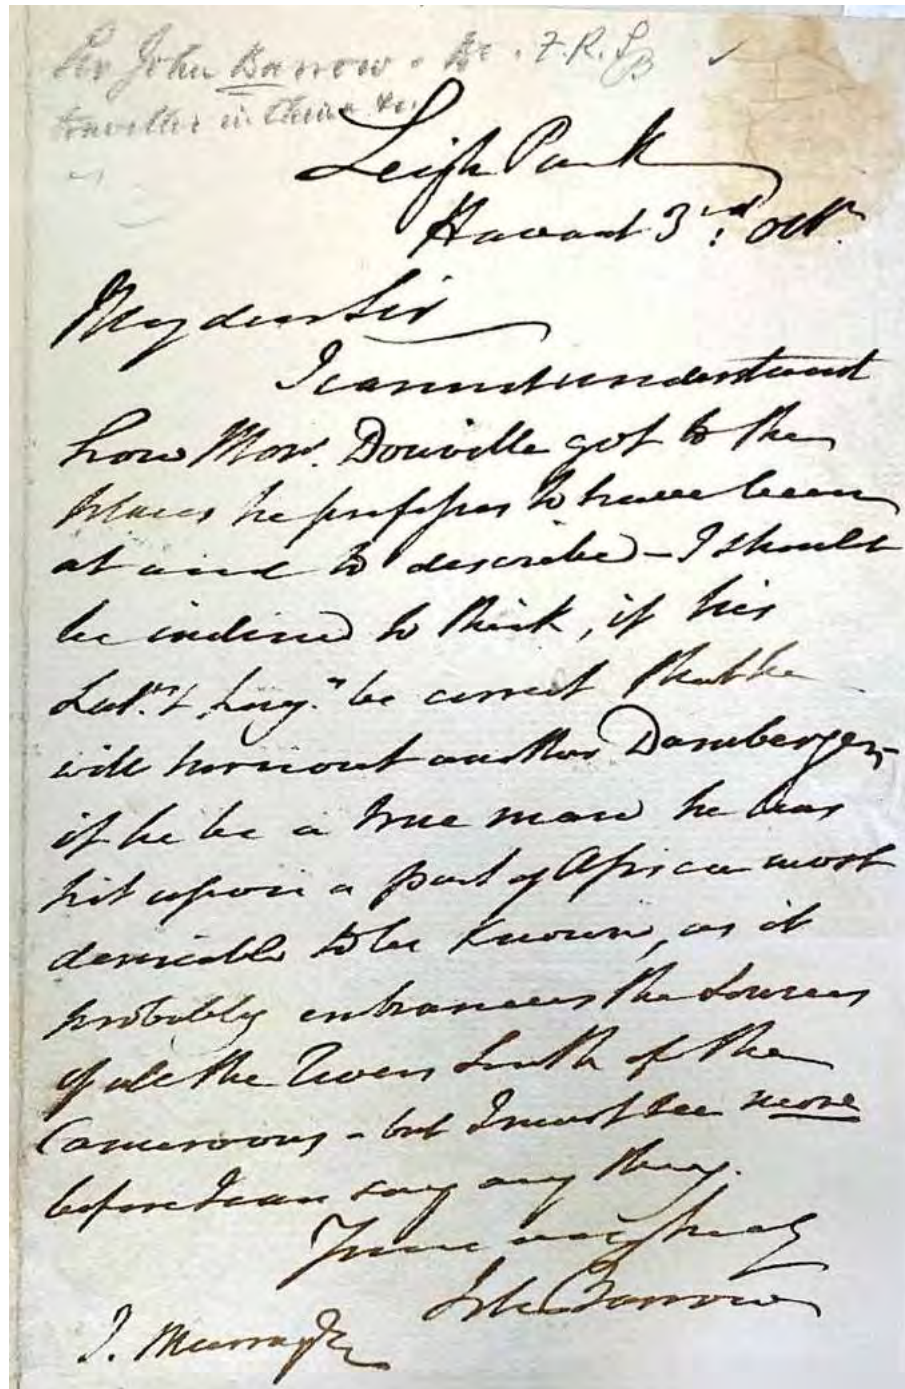 Sir John Barrow. Bt. F.R.S
traveller in China &c.
Leigh Park
Havant 3rd. Octr.
My dear Sir
I cannot understand
how Monr. Douville got to the
places he professes to have been
at and to describe - I should
be inclined to think, if his
Latns. & Longns. be correct that he
will turn out another Damberger,
if he be a true man he has
hit upon a part of Africa most
desirable to be known, as it
probably embraces the sources
of all the Rivers South of the
Cameroons - but I must see more
before I can say any thing.
Yours very truly
John Barrow
J. Murray Esqr